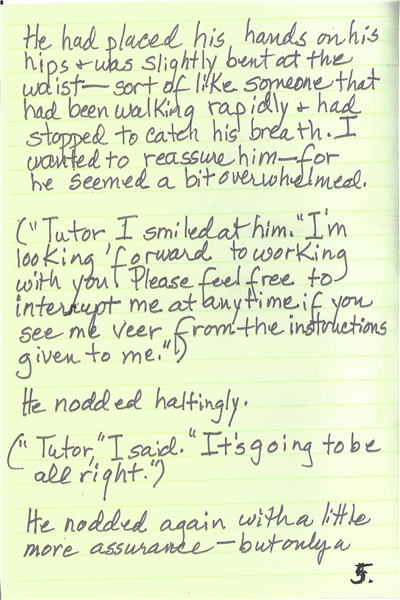 He had placed his hands on his
hips & was slightly bent at the
waist—sort of like someone that
had been walking rapidly & had
stopped to catch his breath. I
wanted to reassure him—for
he seemed a bit overwhelmed.
("Tutor I smiled at him. "I'm
looking forward to working
with you! Please feel free to
interrupt me at anytime if you
see me veer from the instructions
given to me.")
He nodded haltingly.
("Tutor," I said. "It's going to be
all right.")
He nodded again with a little
more assurance—but only a
5.